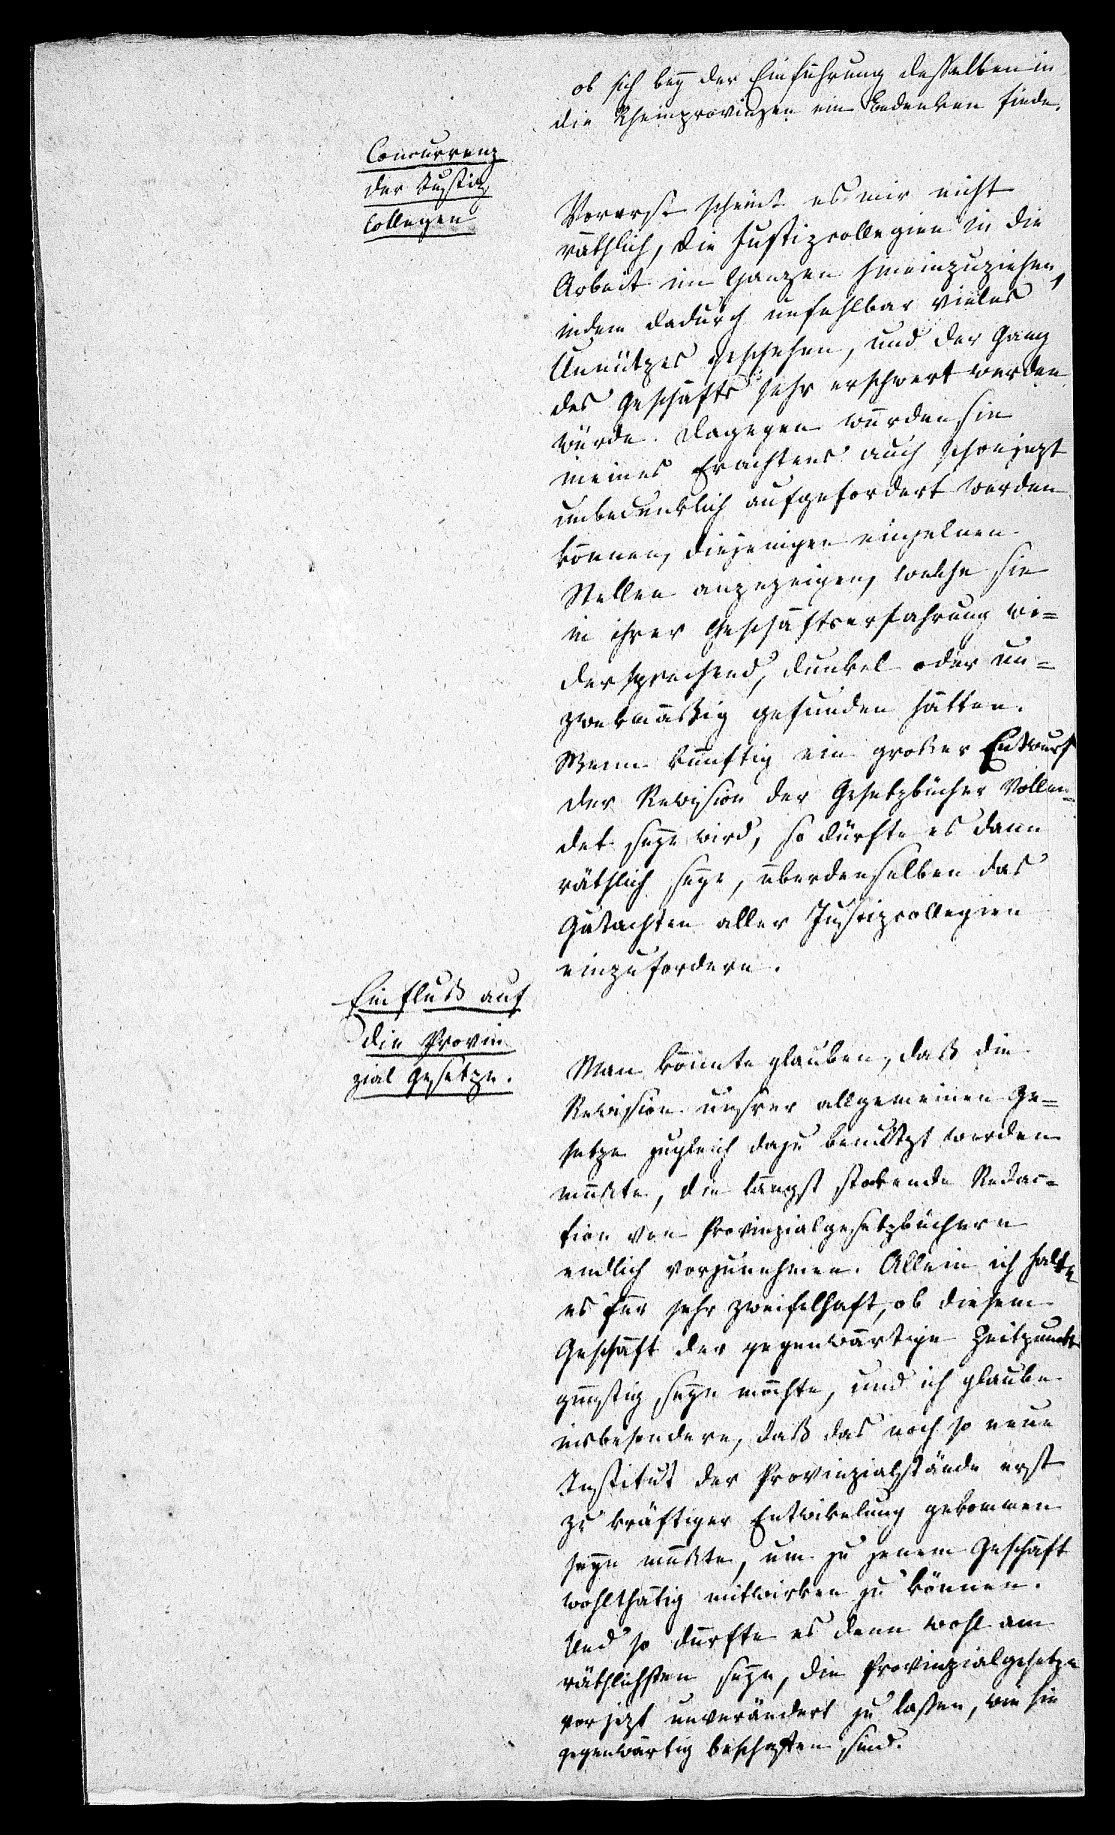 ob sich bey der Einführung desselben in
die Rheinprovinzen ein Bedenken finde.
Concurrenz
der Justiz
Collegen
Vorerst scheint es mir nicht
räthlich, die Justizcollegien in die
Arbeit im Ganzen hineinzuziehen,
indem dadurch unfehlbar vieles
Unnützes geschehen, und der Gang
des Geschäfts sehr erschwert werden
würde. Dagegen würden sie
meines Erachtens auch schon jezt
unbedenklich aufgefordert werden
können, diejenigen einzelnen
Stellen anzuzeigen, welche sie
in ihrer Geschäftserfahrung wi=
dersprechend, dunkel oder un=
zwekmäßig gefunden hätten.
Wenn künftig ein großer Entwurf
der Revision der Gesetzbücher vollen=
det seyn wird, so dürfte es dann
räthlich seyn, über denselben das
Gutachten aller Justizcollegien
einzufordern.
Einfluß auf
die Provin
zial Gesetze.
Man könnte glauben, daß die
Revision unsrer allgemeinen Ge=
setze zugleich dazu benutzt werden
müßte, die längst stokende Redac=
tion von Provinzialgesetzbüchern
endlich vorzunehmen. Allein ich halte
es für sehr zweifelhaft, ob diesem
Geschäft der gegenwärtige Zeitpunkt
günstig seyn möchte, und ich glaube
insbesondere, daß das noch so neue
Institut der Provinzialstände erst
zu kräftiger Entwikelung gekommen
seyn müßte, um zu jenem Geschäft
wohlthätig mitwirken zu können.
Und so dürfte es denn wohl am
räthlichsten seyn, die Provinzialgesetze
vor jezt unverändert zu lassen, wie sie
gegenwärtig beschaffen sind.